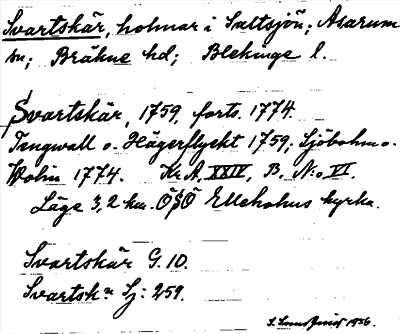 Svartskär, holmar i Saltsjön; Asarum
sn; Bräkne hd; Blekinge l.
Svartskär, 1759, forts. 1774.
Tengwall o. Hägerflyckt 1759; Sjöbohm o.
Wohin 1774. Kr. A. XXIV, B, N:o VI.
Läge 3,2 km. ÖSÖ Ellehohus kyrka.
Svartskär G. 10.
Svartsk:n Sj: 259.
1936.